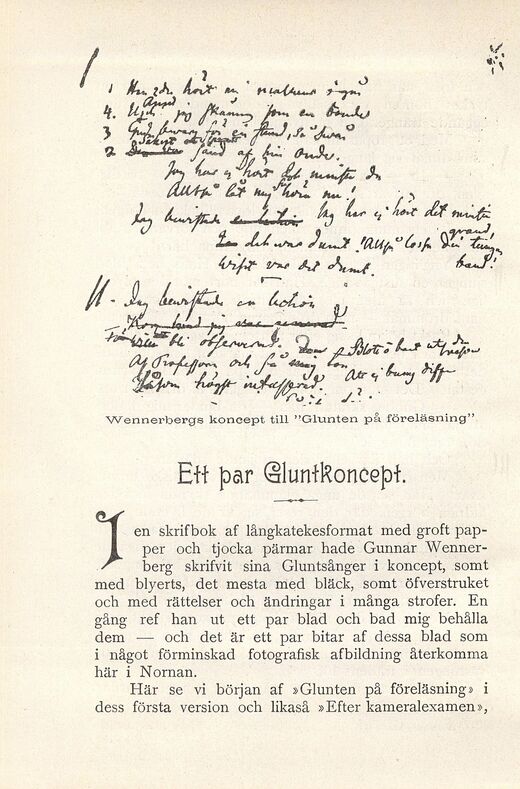 I
1
4.
3
2
Jag har ej hört det minsta du
Alltså låt mig höra nu!
Jag bevistade Jag har ej hört det minsta
grand,
det var dumt. Alltså
band!
Wisst var det dumt.
II. Jag bevistade en lektion
bli observerad.
Af Professorn och så
högst intressered.
Wennerbergs koncept till "Glunten på föreläsning".
Ett par Gluntkoncept.
I en skrifbok af långkatekesformat med groft pap-
per och tjocka pärmar hade Gunnar Wenner-
berg skrifvit sina Gluntsånger i koncept, somt
med blyerts, det mesta med bläck, somt öfverstruket
och med rättelser och ändringar i många strofer. En
gång ref han ut ett par blad och bad mig behålla
dem — och det är ett par bitar af dessa blad som
i något förminskad fotografisk afbildning återkomma
här i Nornan.
Här se vi början af »Glunten på föreläsning» i
dess första version och likaså »Efter kameralexamen»,